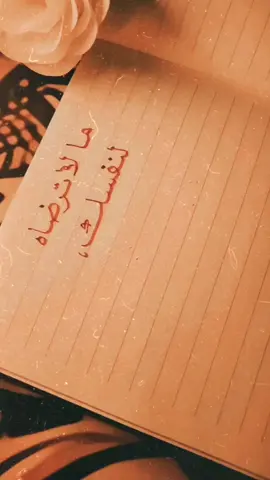 ما لا ترضاه
لنفسك ،